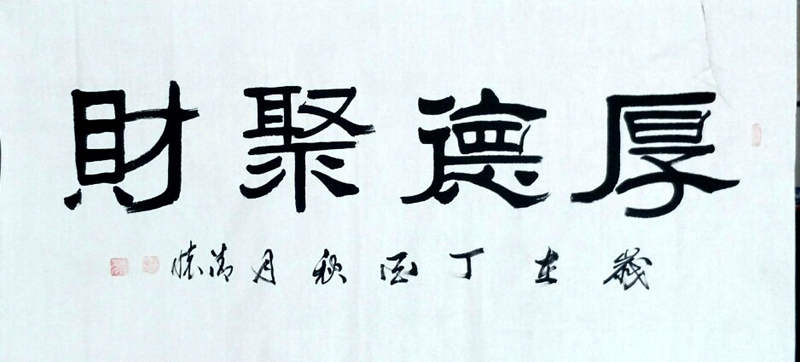 厚德聚財
歲在丁酉秋月